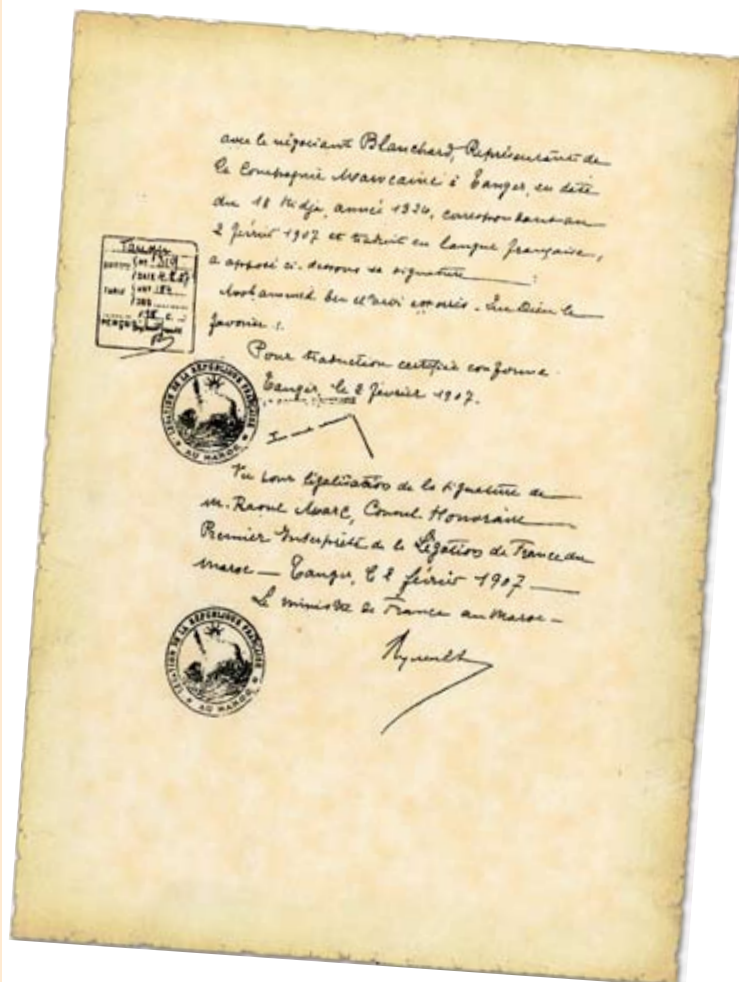 avec le négociant Blanchard, Représentant de
la Compagnie Marocaine à Tanger, en date
du 18 Hidja, année 1324, correspondant au
2 février 1907 et traduit en langue française,
a apposé ci-dessous sa signature
Mohammed ben
favorise
Pour traduction certifiée conforme
Tanger, le 2 février 1907.
Vu pour légalisation de la signature de
M. Raoul Marc, Consul Honoraire
Premier Interprète de la Légation de France au
Maroc — Tanger, le 2 février 1907 —
Le ministre de France au Maroc —
Tanger
DATE
TARIF
LÉGATION DE LA RÉPUBLIQUE FRANÇAISE
AU MAROC
LÉGATION DE LA RÉPUBLIQUE FRANÇAISE
AU MAROC